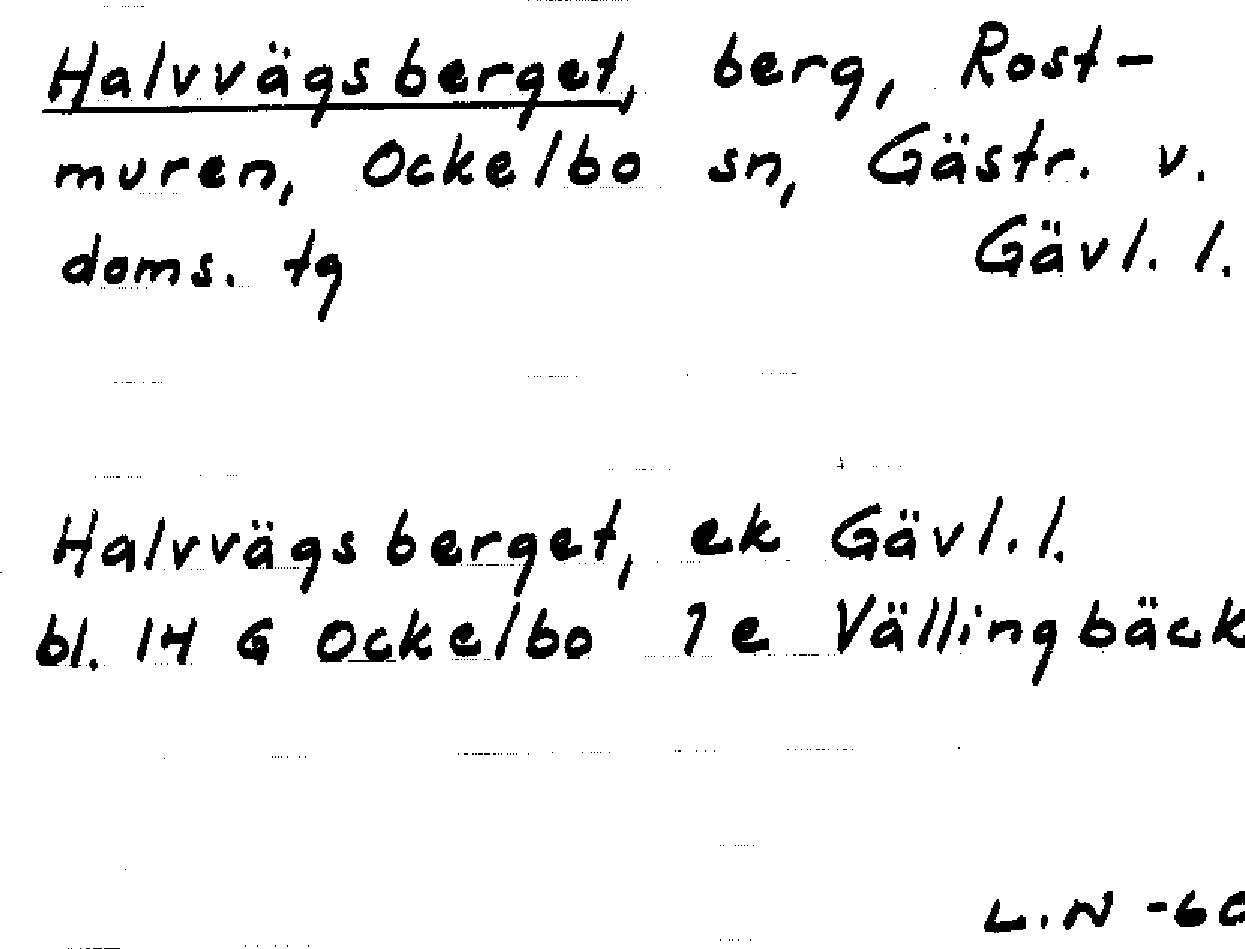 Halvvägsberget, berg, Rost-
muren, Ockelbo sn, Gästr. v.
doms. tg Gävl. l.
Halvvägsberget, ek Gävl. l.
bl. 14 G Ockelbo 1e Vällingbäck
L.N -60